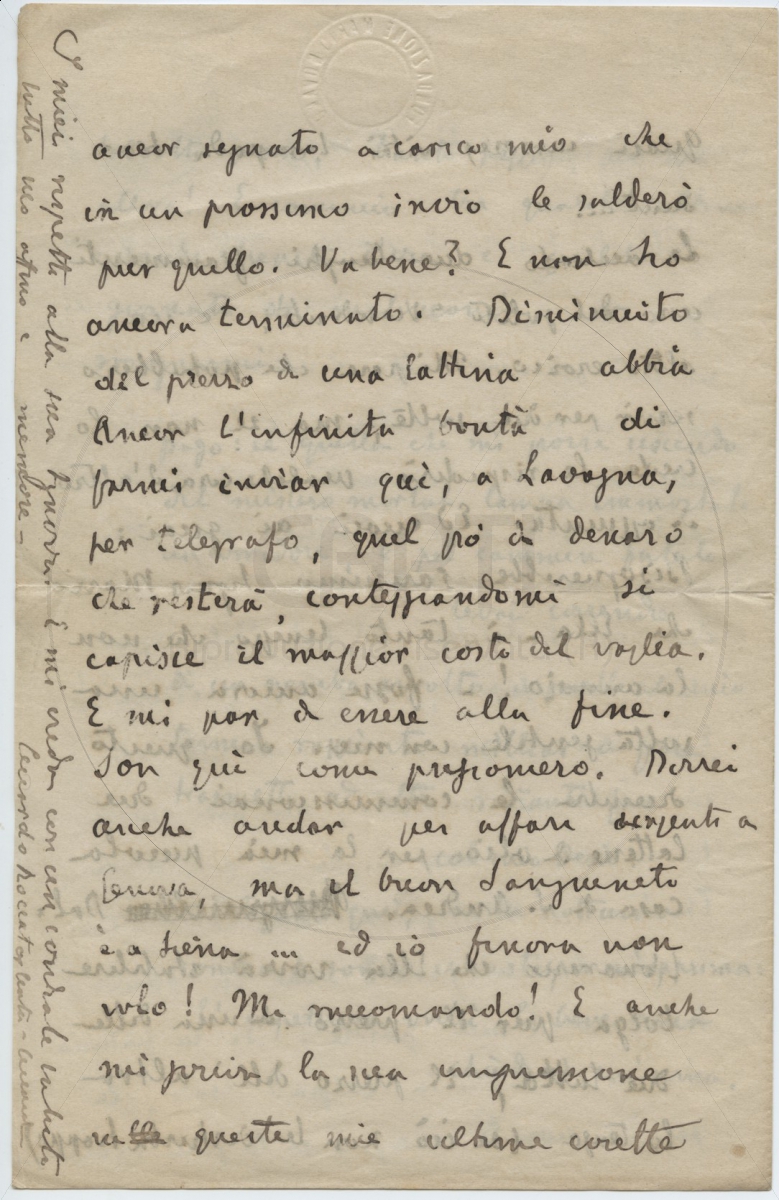 ancor segnato a carico mio che
in un prossimo invio le salderò
pur quello. Va bene? E non ho
ancora terminato. Diminuito
del prezzo di una lattina abbia
ancor l'infinita bontà di
farmi inviar quì, a Lavagna,
per telegrafo, quel pò di denaro
che resterà, conteggiandomi si
capisce il maggior costo del vaglia.
E mi par di essere alla fine.
Son quì come prigioniero. Dovrei
anche andar per affari urgenti a
Genova, ma il buon Sanguineto
è a Siena ... ed io finora non
volo! Mi raccomando! E anche
mi precisi la sua impressione
su queste mie ultime cosette
I miei rispetti alla sua Signora e mi creda con un cordiale saluto
tutto suo affmo e